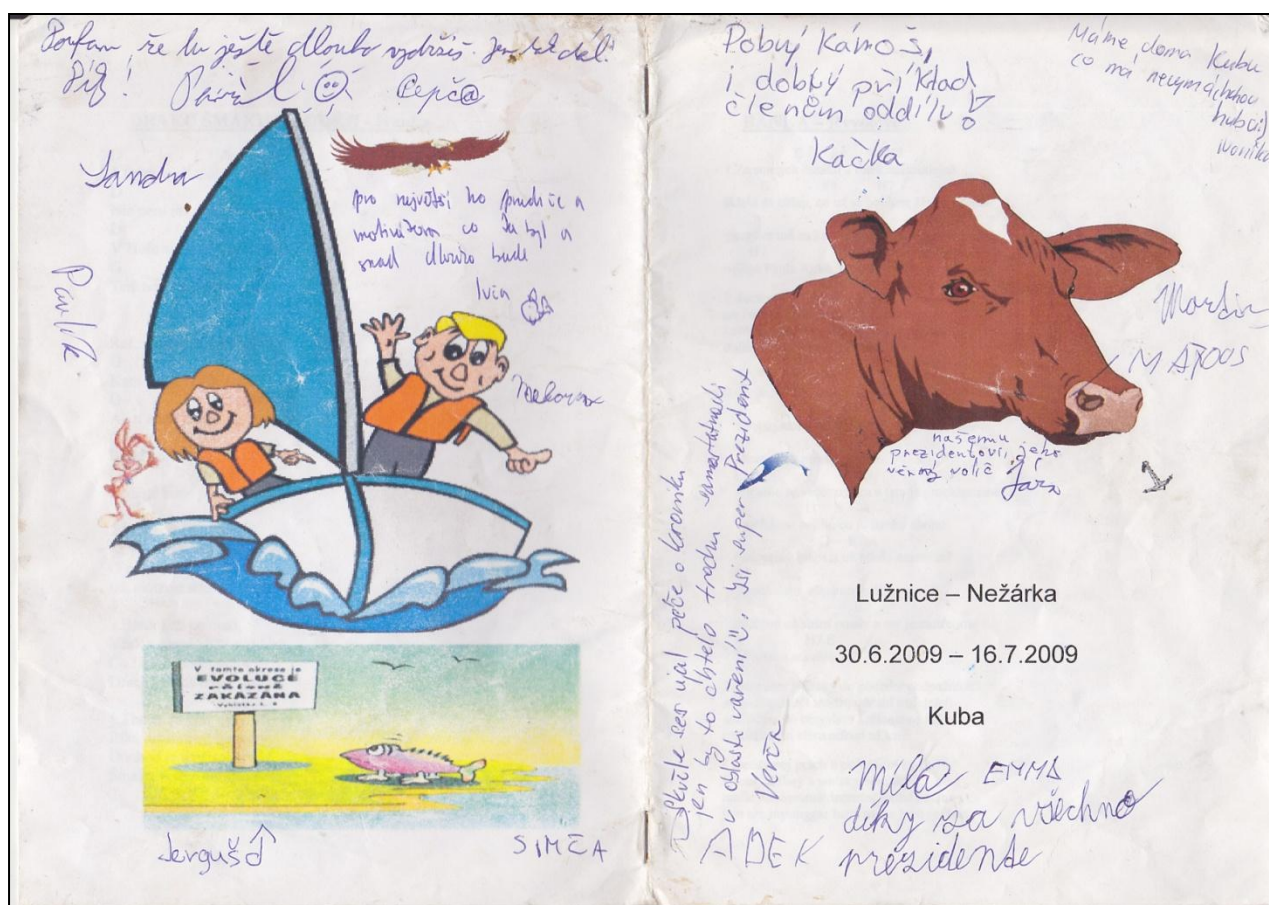 Doufám, že tu ještě dlouho vydržíš. Jen tak dál.
Píď!
Pavel
Čepč@
Sandra
pro největší ho a
motivátora co tu byl a
snad dlouho bude
Ivča
Pavlík
V tomto okrese je
EVOLUCE
přísně
ZAKÁZÁNA
Jerguš
SIMČA
Dobrý kámoš,
i dobrý příklad
členům oddílu!
Kačka
Máme doma Kubu
co má
hubu;)
Martin
MAŤOOS
našemu
prezidentovi, jeho
věrný volič Jára
Skvěle ses ujal péče o kroniku
jen by to chtělo trochu samostatnosti
v oblasti vaření. Jsi super Prezident
Verča
Lužnice – Nežárka
30.6.2009 – 16.7.2009
Kuba
Míla EMMA
díky za všechno
prezidente
ADEK